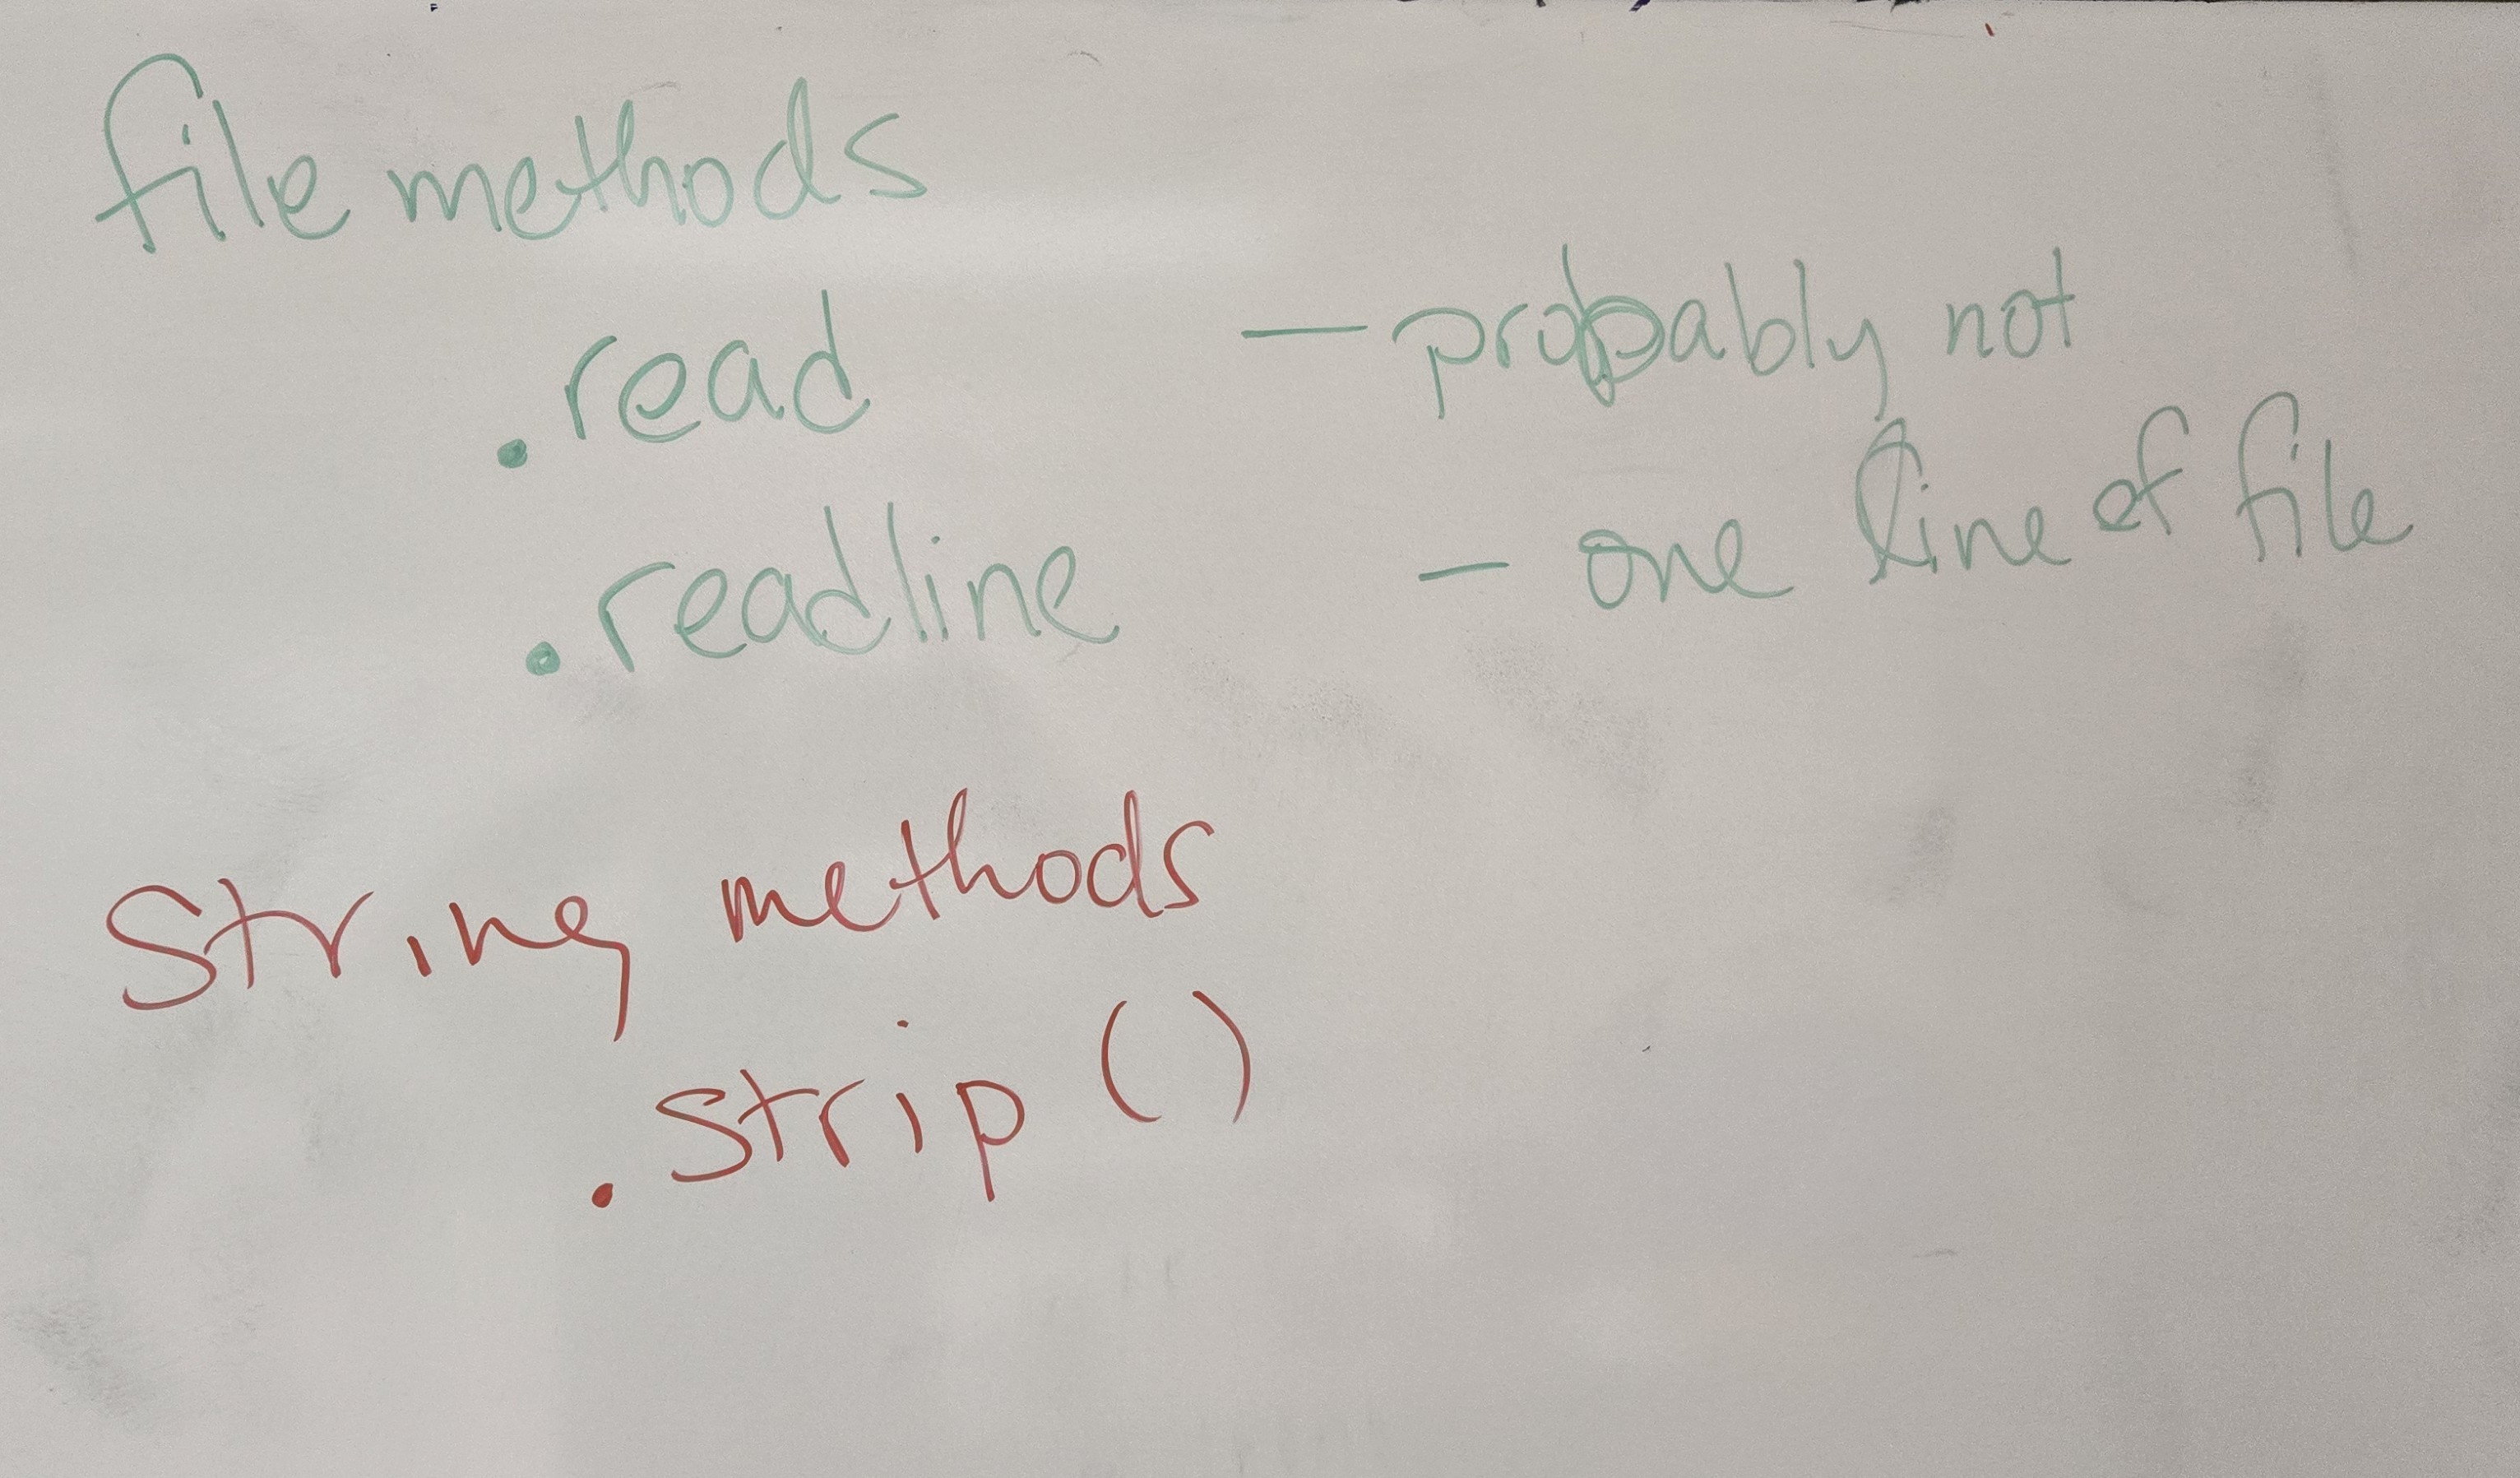 file methods
.read — probably not
.readline — one line of file
String methods
.strip()